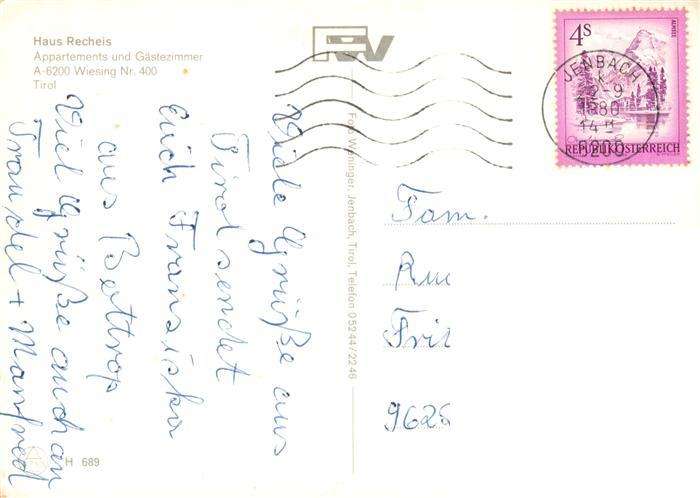 Haus Recheis
Appartements und Gästezimmer
A-6200 Wiesing Nr. 400
Tirol
Viele Grüße aus
Tirol sendet
Euch Fransiska
aus Bottrop
Viel Grüße auch an
Traudel + Manfred
H 689
Foto Wenninger, Jenbach, Tirol, Telefon 05244/2246
4S
ALMSEE
REPUBLIK ÖSTERREICH
JENBACH
1980
6200
Fam.
Frit